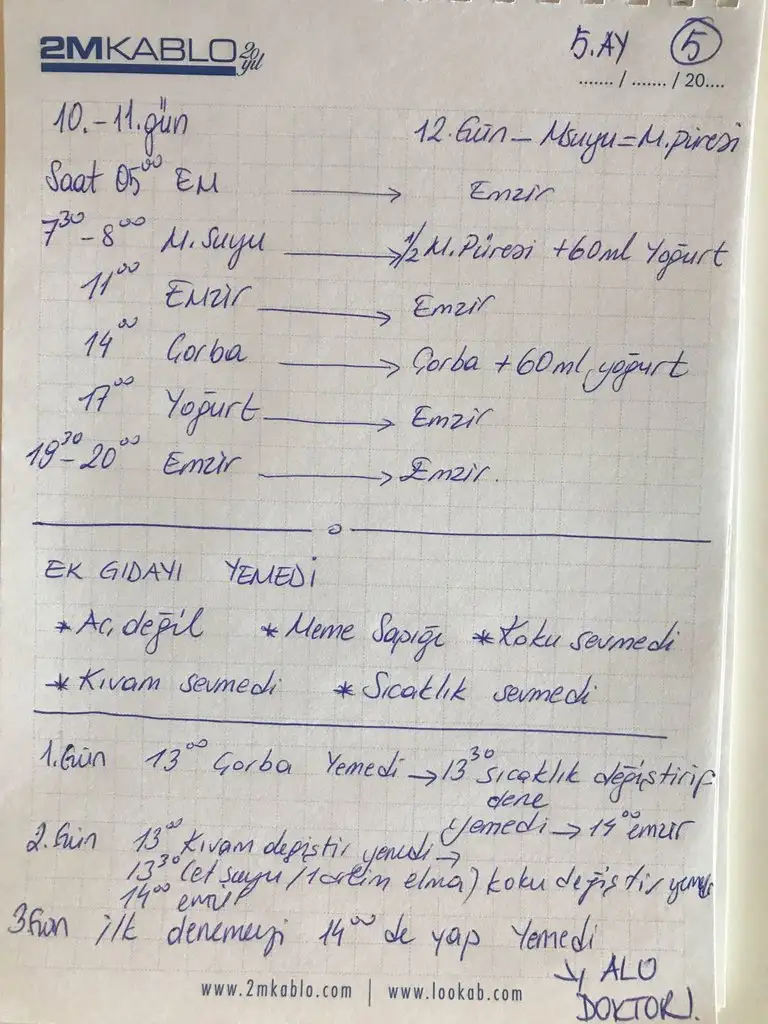 2MKABLO 20 yıl
5.AY 5
....... / ....... / 20....
10.-11.gün 12.Gün - Msuyu=M.püresi
Saat 05⁰⁰ EM → Emzir
7³⁰-8⁰⁰ M.Suyu → 1/2 M.Püresi +60ml Yoğurt
11⁰⁰ Emzir → Emzir
14⁰⁰ Çorba → Çorba +60ml yoğurt
17⁰⁰ Yoğurt → Emzir
19³⁰-20⁰⁰ Emzir → Emzir.
EK GIDAYI YEMEDİ
* Aç değil * Meme Sapığı * Koku sevmedi
* Kıvam sevmedi * Sıcaklık sevmedi
1.Gün 13⁰⁰ Çorba Yemedi → 13³⁰ Sıcaklık değiştirip
dene
yemedi → 14⁰⁰ emzir
2.Gün 13⁰⁰ Kıvam değiştir yemedi →
13³⁰ (et suyu / elma) koku değiştir yemedi
14⁰⁰ emzir
3.Gün ilk denemeyi 14⁰⁰ de yap Yemedi
↘ ALO
DOKTOR).
www.2mkablo.com | www.lookab.com